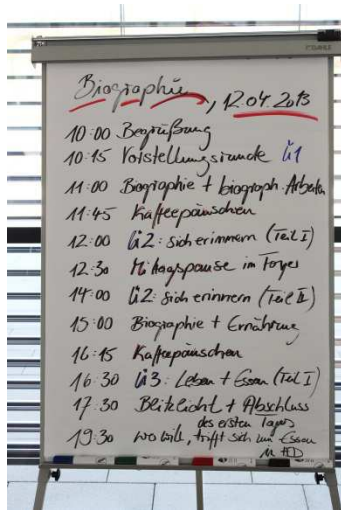 Biographie, 12.04.2013
10:00 Begrüßung
10:15 Vorstellungsrunde Ü1
11:00 Biographie + biograph. Arbeiten
11:45 Kaffeepäuschen
12:00 Ü2: sich erinnern (Teil I)
12:30 Mittagspause im Foyer
14:00 Ü2: sich erinnern (Teil II)
15:00 Biographie + Ernährung
16:15 Kaffeepäuschen
16:30 Ü3: Leben + Essen (Teil I)
17:30 Blitzlicht + Abschluss
des ersten Tages
19:30 wo will, trifft sich zum Essen
in HD